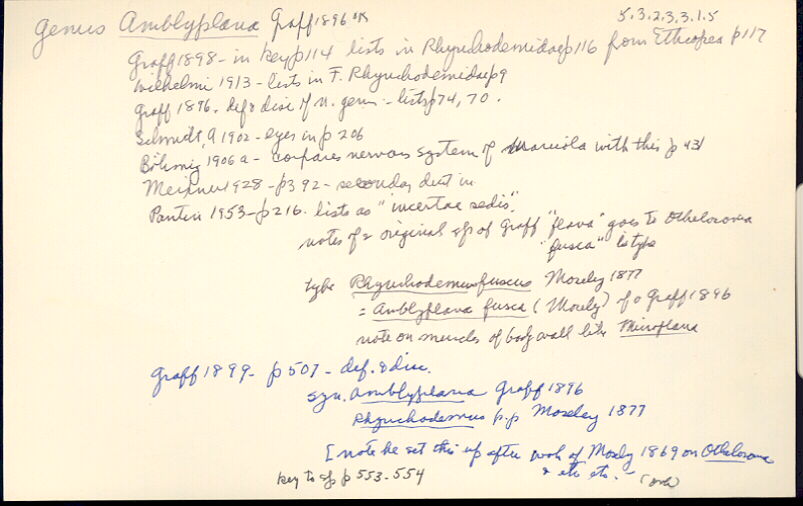 5.3.2.3.3.1.5
Genus Amblyplana Graff 1896 OK
Graff 1898 - in key p 114 lists in Rhynchodemidae p 116 from Ethiopea p 117
Wilhelmi 1913 - lists in F. Rhynchodemidae p 9
Graff 1896. def & disc of n. genu - lists p 74, 70.
Schmidt, A 1902 - eyes in p 206
Böhmig 1906 a - compares nervous system of Maricola with this p 431
Meixner 1928 - p 392 - secondary duct in
Pantin 1953 - p 216. lists as "incertae sedis".
notes of 2 original sp of Graff "flava" goes to Othelosoma
"fusca" is type
type Rhynchodemus fuscus Moseley 1877
= Amblyplana fusca (Mosely) of Graff 1896
note on muscles of body wall like Microplana
Graff 1899 - p 507 - def. & disc.
syn. Amblyplana Graff 1896
Rhynchodemus p.p Moseley 1877
[note he set this up after work of Mosely 1869 on Othelosoma
& etc etc. -
key to sp p 553-554